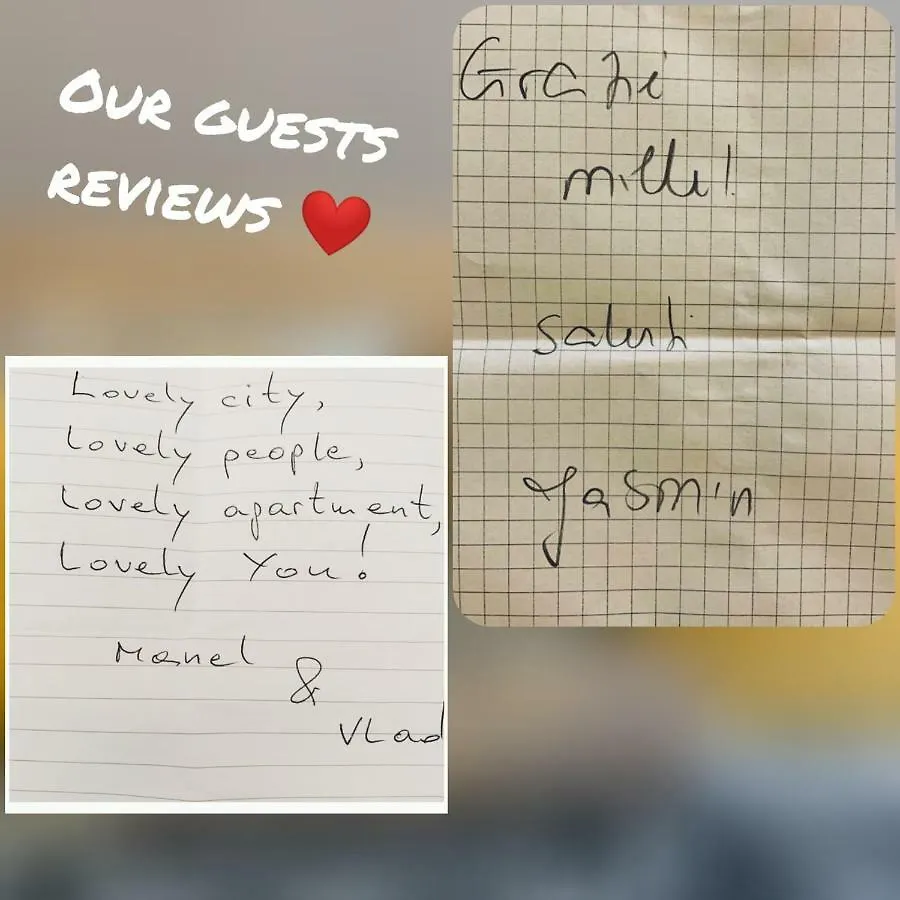 OUR GUESTS
REVIEWS ❤️
Lovely city,
Lovely people,
Lovely apartment,
Lovely You!
Manel
&
Vlad
Grazi
mille!
Saluti
Yasmin